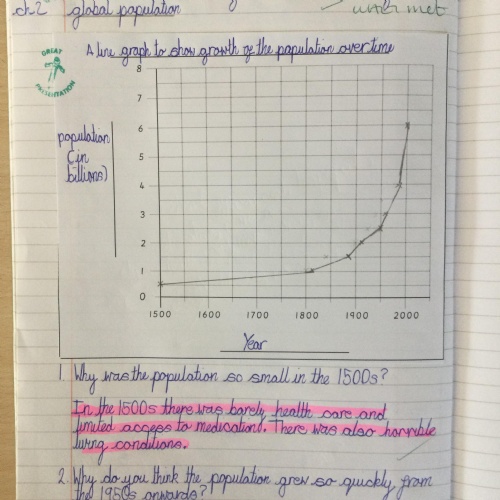 ch2 global population
under met
GREAT PRESENTATION
A line graph to show growth of the population over time
population
(in
billions)
8
7
6
5
4
3
2
1
0
1500 1600 1700 1800 1900 2000
Year
1. Why was the population so small in the 1500s?
In the 1500s there was barely health care and
limited access to medication. There was also horrible
living conditions.
2. Why do you think the population grew so quickly from
the 1950s onwards?